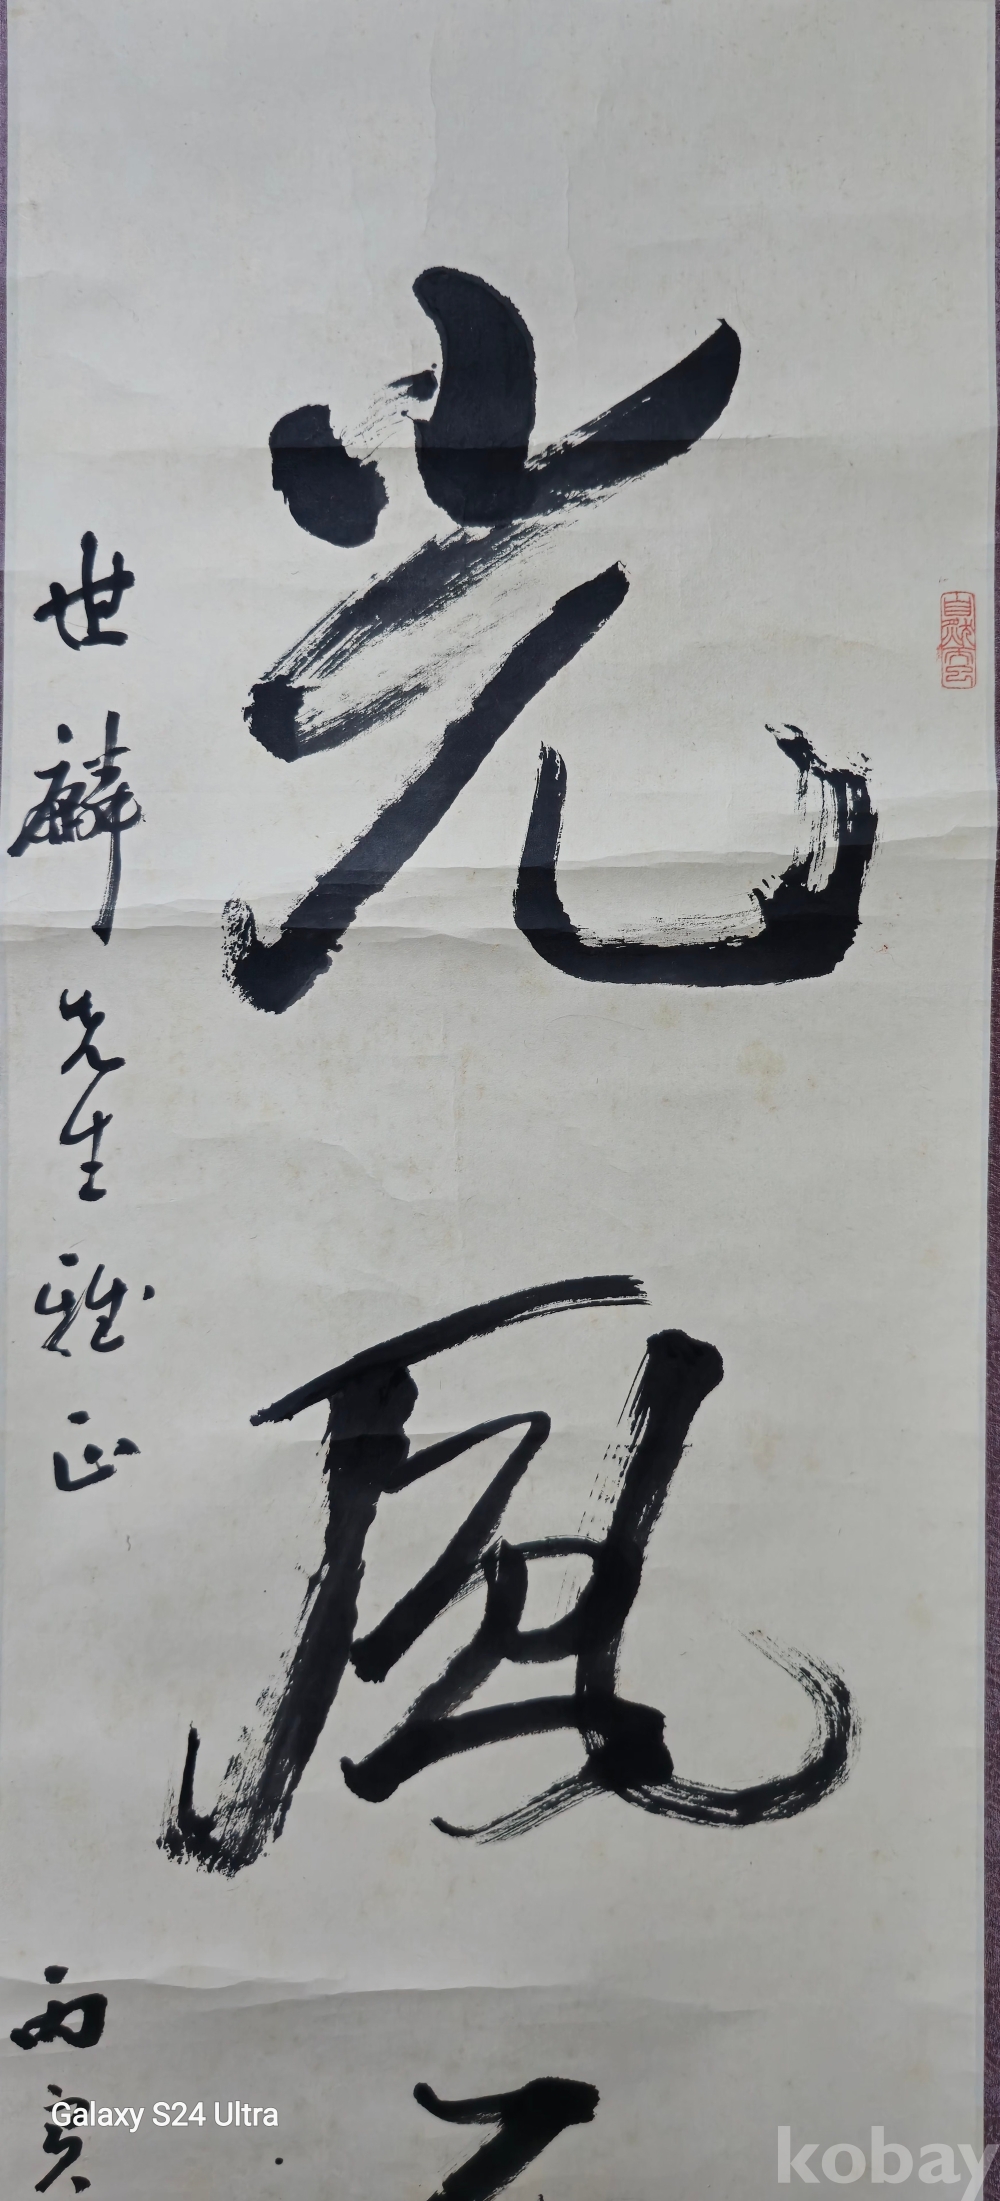 光風
世麟先生雅正
Galaxy S24 Ultra
kobay